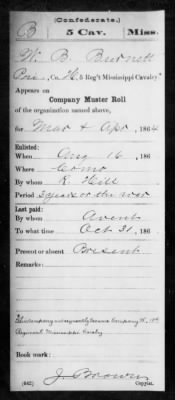 (Confederate.)
B 5 Cav. Miss.
W. B. Burnett
Pvt., Co. H, 5 Reg't Mississippi Cavalry*
Appears on
Company Muster Roll
of the organization named above,
for Mar & Apr, 1864
Enlisted:
When Aug 16, 186
Where Como
By whom R. Hill
Period 3 years or the war
Last paid:
By whom Avent
To what time Oct 31, 186
Present or absent Present
Remarks:
*This company subsequently became Company
Regiment Mississippi Cavalry
Book mark:
J. Brown
(642) Copyist.